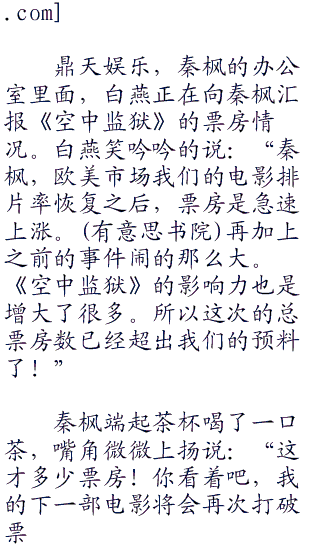 .com]
鼎天娱乐，秦枫的办公
室里面，白燕正在向秦枫汇
报《空中监狱》的票房情
况。白燕笑吟吟的说：“秦
枫，欧美市场我们的电影排
片率恢复之后，票房是急速
上涨。(有意思书院)再加上
之前的事件闹的那么大。
《空中监狱》的影响力也是
增大了很多。所以这次的总
票房数已经超出我们的预料
了！”
秦枫端起茶杯喝了一口
茶，嘴角微微上扬说：“这
才多少票房！你看着吧，我
的下一部电影将会再次打破
票